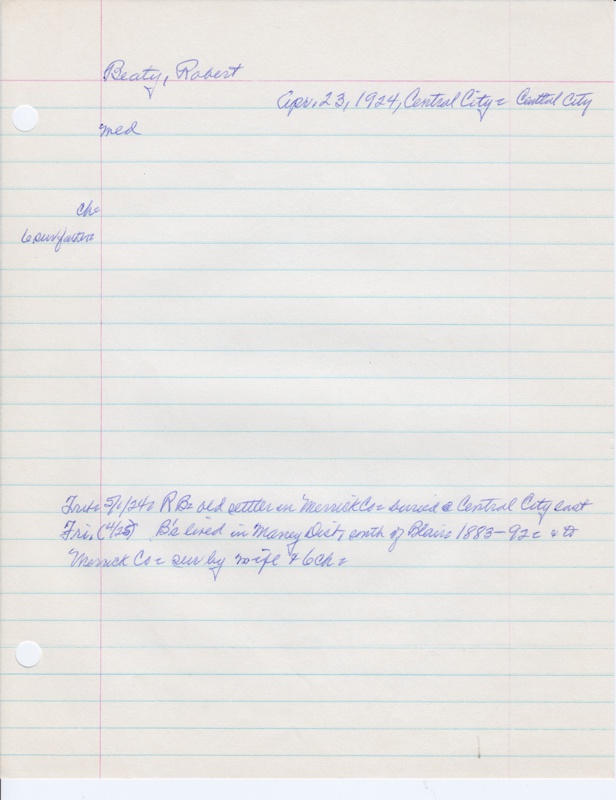 Beaty, Robert
Apr. 23, 1924, Central City = Central City
med
ch=
6 sur/father=
Trib= 5/1/24= RB= old settler in Merrick Co= buried @ Central City last
Fri. (4/25) B's lived in Maney Dist, south of Blair= 1883-92= & to
Merrick Co= sur by wife & 6 ch=